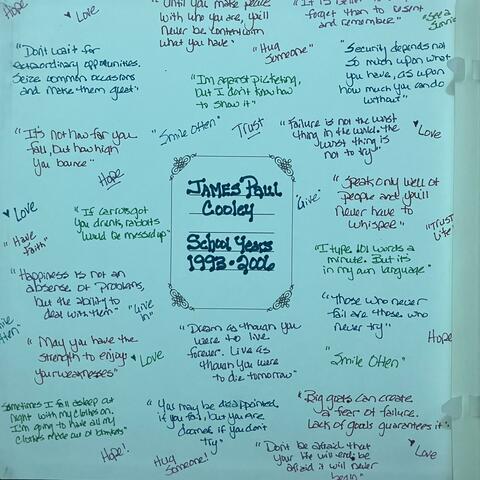 Hope
Love
"Until you make peace
with who you are, you'll
never be content with
what you have"
"It is better to
forget than to resent
and remember."
"See a
"Don't wait for
extraordinary opportunities.
Seize common occasions
and make them great"
"Hug
Someone"
"Security depends not
so much upon what
you have, as upon
how much you can do
without"
"I'm against picketing,
but I don't know how
to show it"
"It's not how far you
fall, but how high
you bounce"
"Smile Often"
Trust
"Failure is not the worst
thing in the world. The
worst thing is
not to try"
Love
Hope
JAMES Paul
Cooley
School Years
1993-2006
"Give"
"Speak only well of
people and you'll
never have to
whisper"
Love
"If carrots got
you drunk, rabbits
would be messed up"
"Trust
Life"
"Have
faith"
"I type 101 words a
minute. But it's
in my own language"
"Happiness is not an
absence of problems,
but the ability to
deal with them"
"Give
in"
"Those who never
fail are those who
never try"
"Dream as though you
were to live
forever. Live as
though you were
to die tomorrow"
Hope
"May you have the
strength to enjoy
your weaknesses"
Love
"Smile Often"
Sometimes I fall asleep at
night with my clothes on.
I'm going to have all my
clothes made out of blankets"
"You may be disappointed
if you fail, but you are
doomed if you don't
try"
"Big goals can create
a fear of failure.
Lack of goals guarantees it"
Hope!
Hug
Someone!
"Don't be afraid that
your life will end, be
afraid it will never
begin"
Love